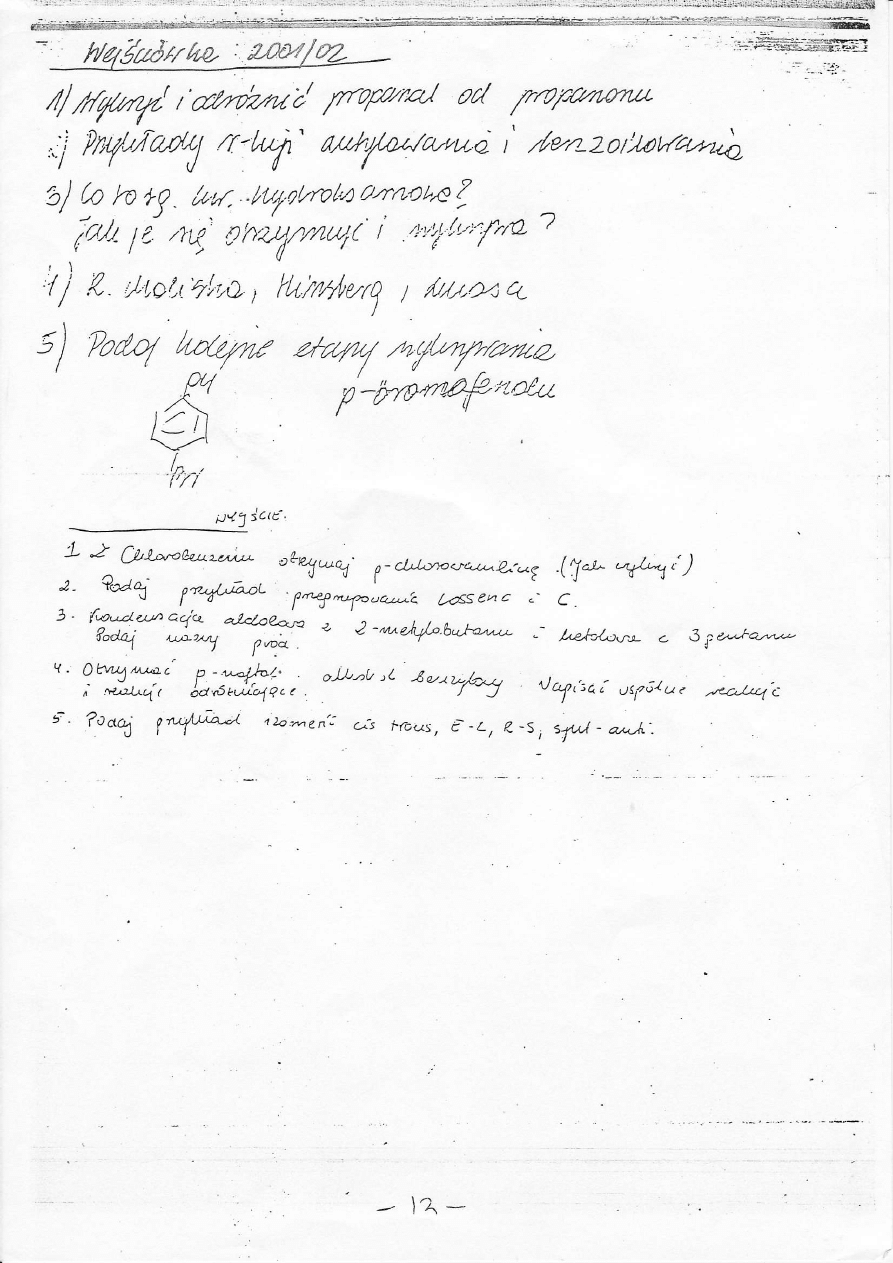 Wejściówka 2001/02
1) Wykryć i odróżnić propanal od propanonu
2) Przykłady r-kcji acetylowania i benzoilowania
3) Co to są kw. hydroksamowe?
Jak je się otrzymuje i wykrywa?
4) R. Molisha, Hinsberg, Lucasa
5) Podaj kolejne etapy wykrywania
p-bromofenolu
OH
Br
WYJŚCIE.
1 Z Chlorobenzenu otrzymaj p-chloroanilinę. (Jak wykryć)
2. Podaj przykład przegrupowania Lossena i C.
3. Kondensacja aldolowa z 2-metylobutanu i ketolowa z 3 pentanu
Podaj nazwy prod.
4. Otrzymać p-naftol. alkohol benzylowy. Napisać wspólne reakcje
i reakcje odróżniające.
5. Podaj przykład izomerii cis trans, E-Z, R-S, syn-anti.
- 12 -